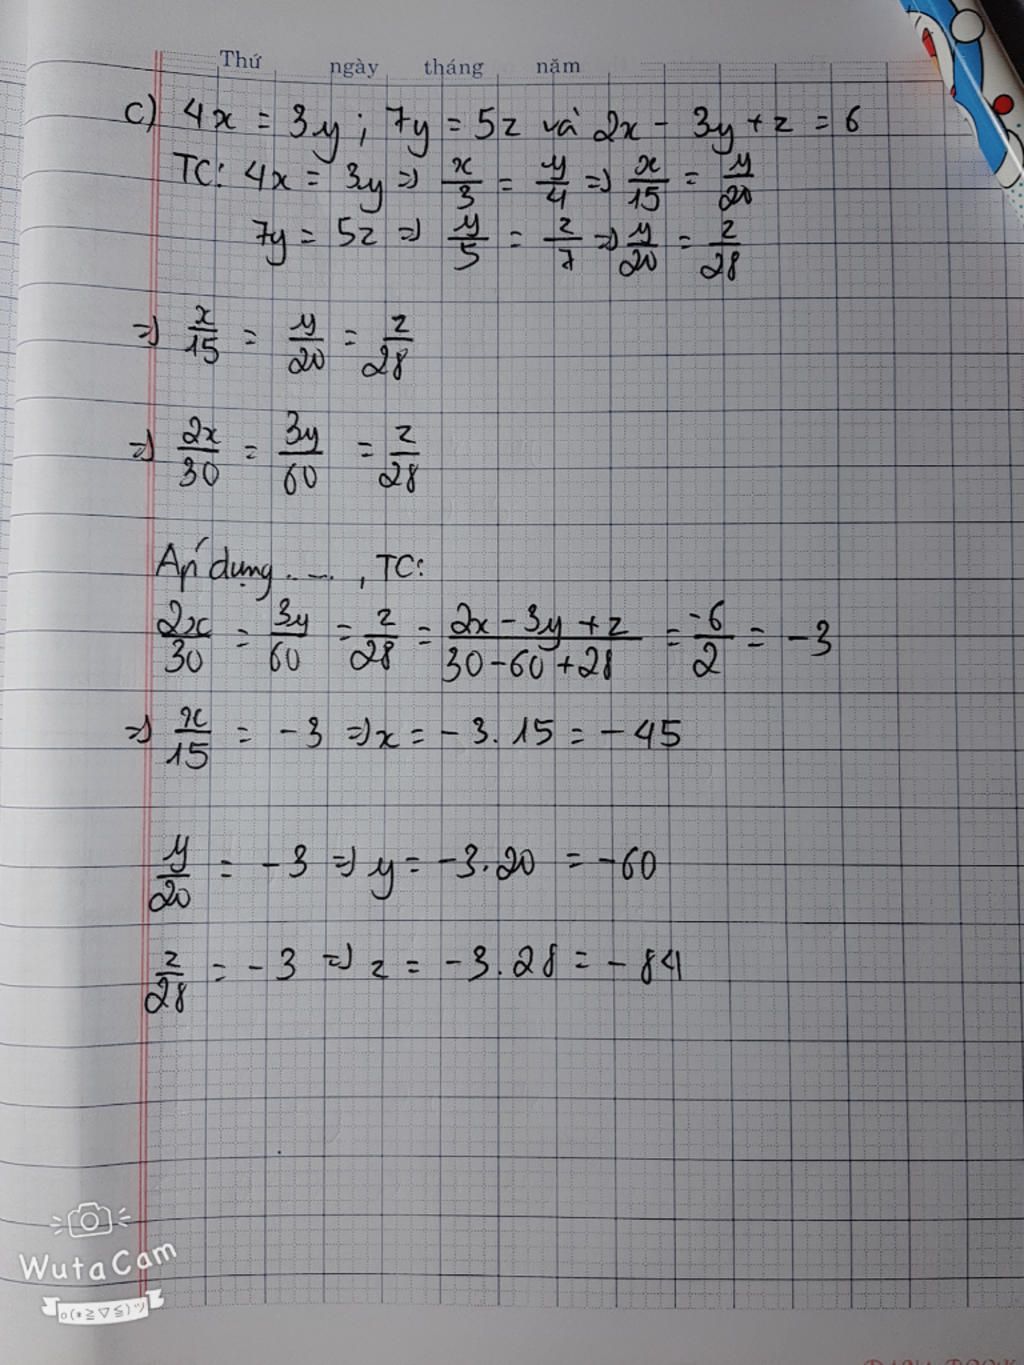 Thứ ngày tháng năm
c) 4x = 3y ; 7y = 5z và 2x - 3y + z = 6
TC: 4x = 3y => x/3 = y/4 => x/15 = y/20
7y = 5z => y/5 = z/7 => y/20 = z/28
=> x/15 = y/20 = z/28
=> 2x/30 = 3y/60 = z/28
Áp dụng ....., TC:
2x/30 = 3y/60 = z/28 = 2x - 3y + z/30 - 60 + 28 = -6/2 = -3
=> x/15 = -3 => x = -3.15 = -45
y/20 = -3 => y = -3.20 = -60
z/28 = -3 => z = -3.28 = -84
WutaCam
o(*≧▽≦)ツ